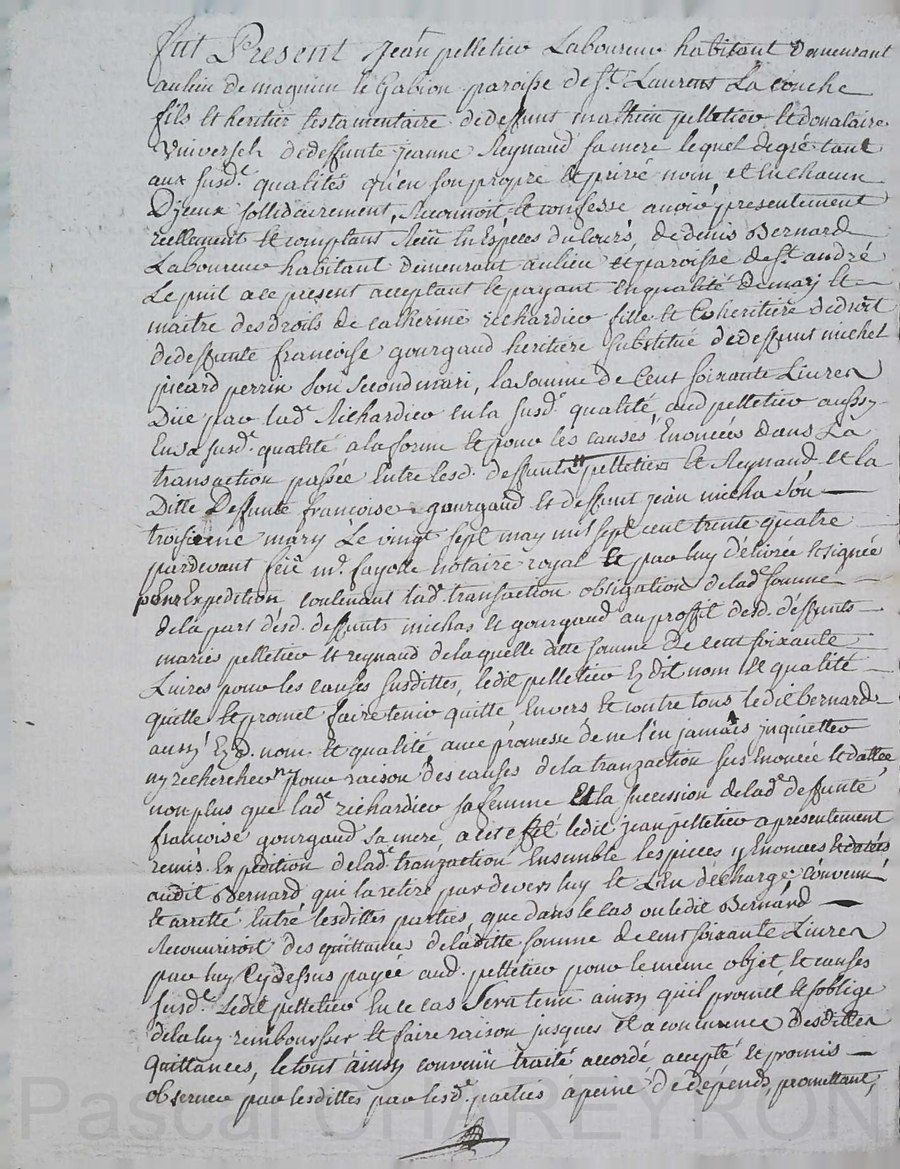 fut Present Jean pelletier Laboureur habitant demeurant
au lieu de magnieu le Gabion paroisse de st. Laurent La conche
fils et heritier testamentaire de deffunt mathieu pelletier et donataire
Universel de deffunte jeanne Reynaud sa mere lequel de gré tant
aux susd. qualités qu'en son propre et privé nom et en chacun
D'jceux sollidairement, Reconnoit et confesse avoir presentement
reellement et comptant Reçu En Espèces du cours, de denis Bernard
Laboureur habitant demeurant au lieu et paroisse de st. andré
Le puil a ce present acceptant et payant En qualité de mary et
maitre des droits de catherine richardier fille et Coheritiere de droit
de deffunte francoise gourgaud heritiere substitué de deffunt michel
picard perrin son second mari, la somme de Cent soixante Livres
Düe par lad. Richardier en la susd. qualité, aud pelletier aussy
En sa susd. qualité a la forme et pour les causes Enoncées dans La
transaction passée Entre lesd. deffunts pelletier et Reynaud et la
Ditte Deffunte francoise gourgaud et deffunt jean micha son
troisieme mary Le vingt sept may mil sept cent trente quatre
pardevant feu me. fayolle notaire royal et par luy délivrée et signée
pour Expedition contenant lad. transaction obligation de lad. somme
de la part desd. deffunts michas et gourgaud au proffit desd. deffunts
maries pelletier et reynaud de laquelle ditte somme de cent soixante
Livres pour les causes susdittes, ledit pelletier Ezdit nom et qualité
quitte et promet faire tenir quitte Envers et contre tous ledit bernard
aussy Ezd. nom et qualité avec promesse de ne l'en jamais jnquietter
ny rechercher ny pour raison des causes de la tranzaction sus Enoncée et dattée
non plus que lad. richardier sa femme Et la succession de lad. deffunte
francoise gourgaud sa mere, a cet effet ledit jean pelletier a presentement
remis Expedition de lad. tranzaction Ensemble les pieces y Enoncées et datés
audit Bernard qui la retire par devers luy et L'en décharge: convenu
et arretté Entre lesdittes parties, que dans le cas ou ledit Bernard
Recouvriroit des quittances de laditte somme de cent soixante Livres
par luy Cy dessus payée aud. pelletier pour le meme objet et causes
susd. Ledit pelletier En ce cas Sera tenu ainsy qu'il promet et s'oblige
de la luy rembourser et faire raison jusques et a concurence desdittes
quittances, le tout ainsy convenu traité accordé accepté et promis
observer par lesdittes par lesd. parties a peine de dépends, promettant,
Pascal CHAREYRON